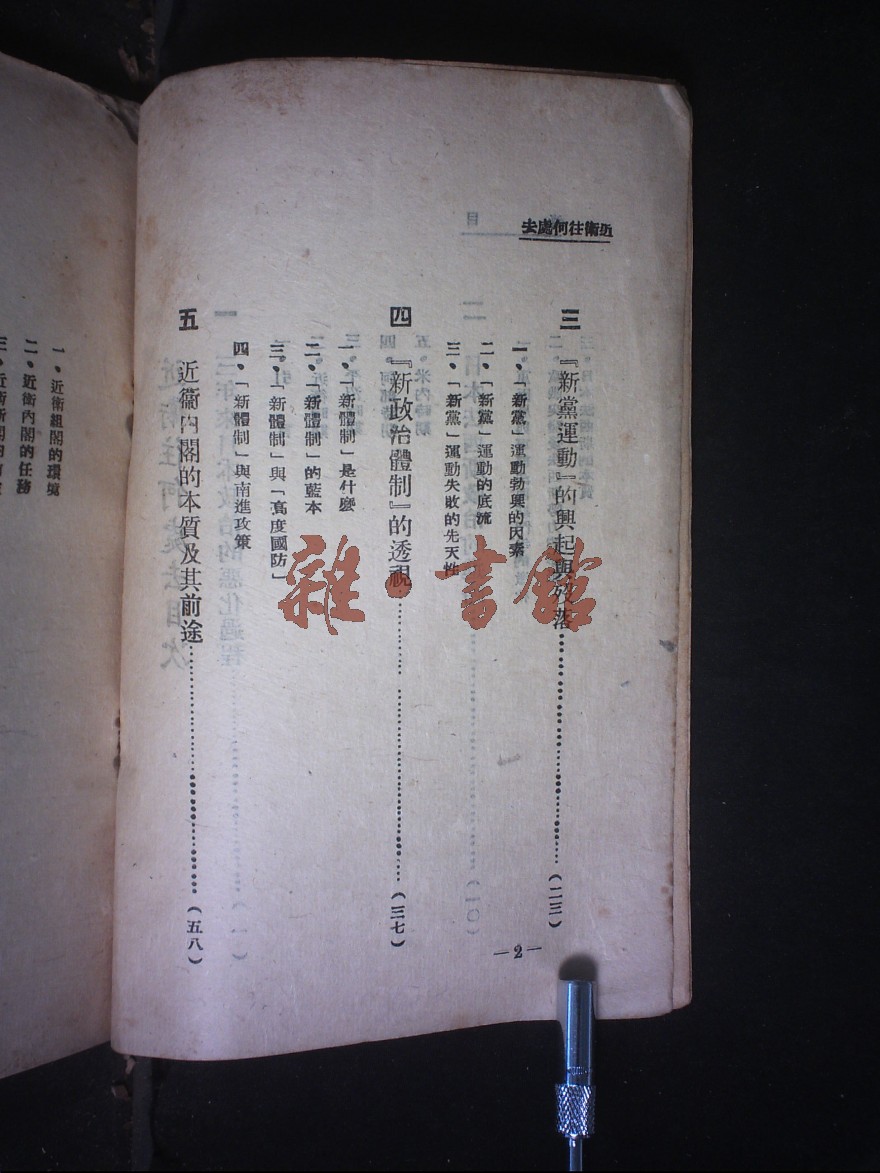 近衛往何處去
三 『新黨運動』的興起與歿落……(二三)
一、「新黨」運動勃興的因素
二、「新黨」運動的底流
三、「新黨」運動失敗的先天性
四 『新政治體制』的透視……(三七)
一、「新體制」是什麼
二、「新體制」的藍本
三、「新體制」與「高度國防」
四、「新體制」與南進政策
五 近衞內閣的本質及其前途……(五八)
—2—
一、近衛組閣的環境
二、近衛內閣的任務
雜·書館